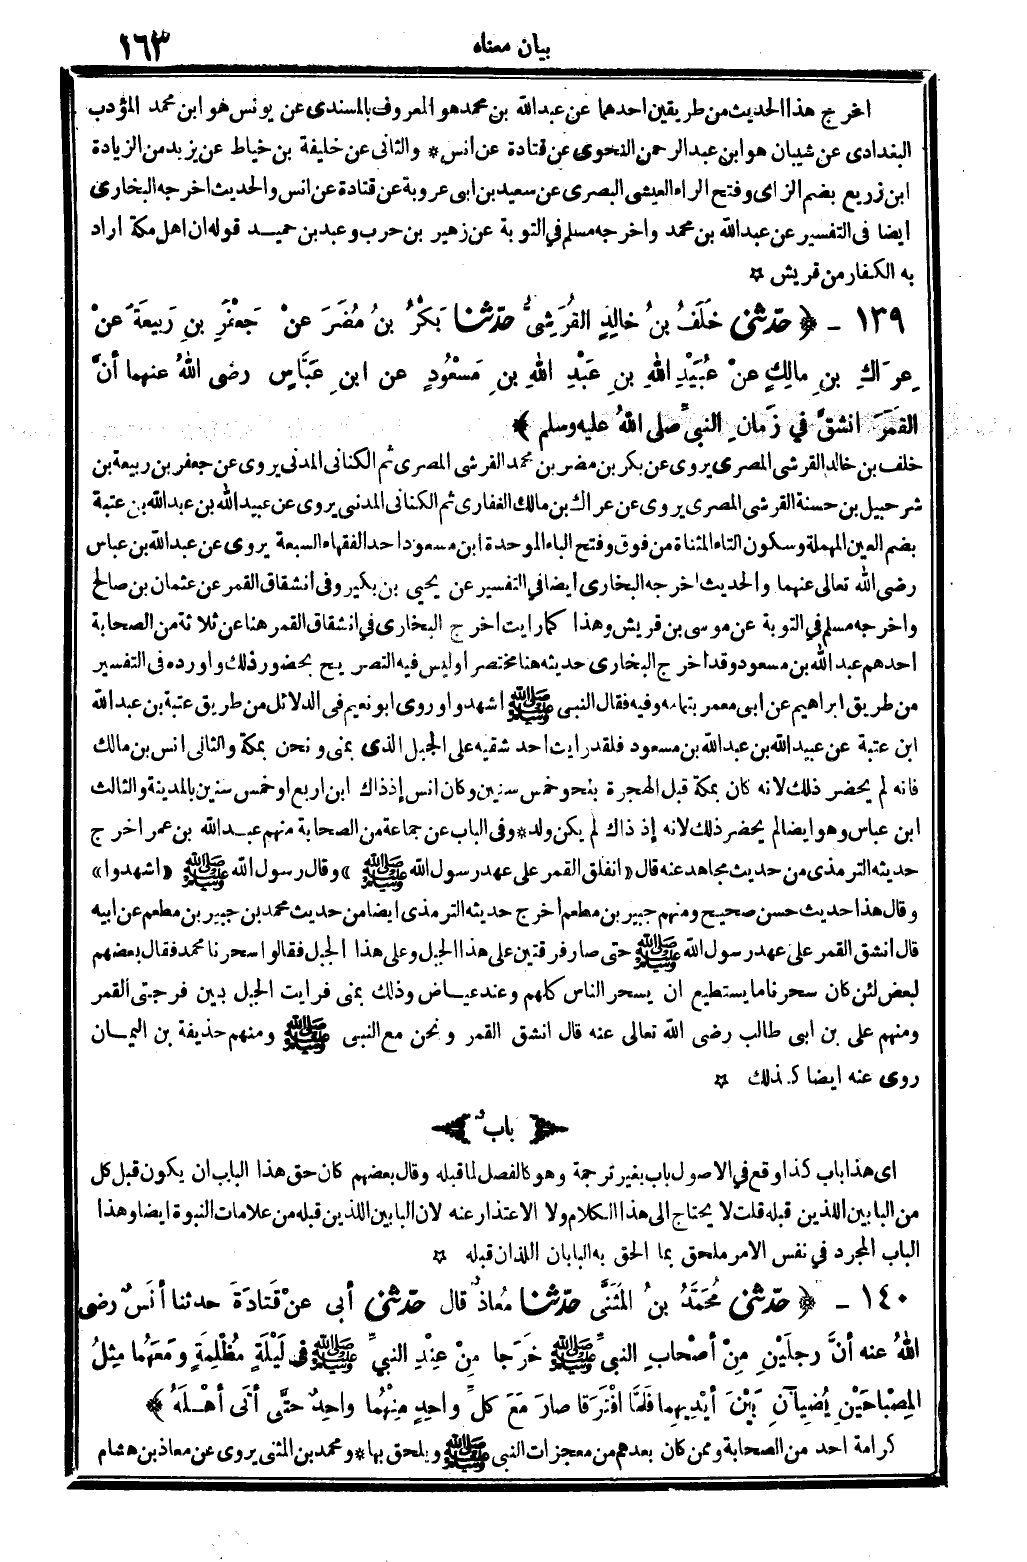 ١٦٣
بيان معناه
اخرج هذا الحديث من طريقين احدهما عن عبدالله بن محمد هو المعروف بالمسندى عن يونس هو ابن محمد المؤدب
البغدادى عن شيبان هو ابن عبدالرحمن النحوى عن قتادة عن انس * والثانى عن خليفة بن خياط عن يزيد من الزيادة
ابن زريع بضم الزاى وفتح الراء العيشى البصرى عن سعيد بن ابى عروبة عن قتادة عن انس والحديث اخرجه البخارى
ايضا فى التفسير عن عبدالله بن محمد واخرجه مسلم فى التوبة عن زهير بن حرب وعبد بن حميد قوله ان اهل مكة اراد
به الكفار من قريش ☆
١٣٩ - ﴿ حدّثنى خَلَفُ بنُ خالِدٍ القُرَشِىُّ حدّثنا بَكْرُ بنُ مُضَرَ عنْ جَعْفَرِ بنِ رَبِيعَةَ عنْ
عِرَاكِ بنِ مالِكٍ عنْ عُبَيْدِ اللهِ بنِ عَبْدِ اللهِ بنِ مَسْعُودٍ عن ابنِ عَبَّاسٍ رضى اللهُ عنهما أنَّ
القَمَرَ انْشَقَّ في زَمانِ النبىِّ صلى اللهُ عليه وسلم ﴾
خلف بن خالد القرشى المصرى يروى عن بكر بن مضر بن محمد القرشى المصرى ثم الكنانى المدنى يروى عن جعفر بن ربيعة بن
شرحبيل بن حسنة القرشى المصرى يروى عن عراك بن مالك الغفارى ثم الكنانى المدنى يروى عن عبيدالله بن عبدالله بن عتبة
بضم العين المهملة وسكون التاء المثناة من فوق وفتح الباء الموحدة ابن مسعود احد الفقهاء السبعة يروى عن عبدالله بن عباس
رضى الله تعالى عنهما والحديث اخرجه البخارى أيضا في التفسير عن يحيى بن بكير وفى انشقاق القمر عن عثمان بن صالح
واخرجه مسلم في التوبة عن موسى بن قريش وهذا كما رايت اخرج البخارى في انشقاق القمر هنا عن ثلاثة من الصحابة
احدهم عبدالله بن مسعود وقد اخرج البخارى حديثه هنا مختصرا وليس فيه التصريح بحضور ذلك واورده فى التفسير
من طريق ابراهيم عن ابى معمر بتمامه وفيه فقال النبى ﷺ اشهدوا وروى ابو نعيم فى الدلائل من طريق عتبة بن عبدالله
ابن عتبة عن عبيدالله بن عبدالله بن مسعود فلقد رايت احد شقيه على الجبل الذى بمنى ونحن بمكة والثانى انس بن مالك
فانه لم يحضر ذلك لانه كان بمكة قبل الهجرة بنحو خمس سنين وكان انس إذ ذاك ابن اربع او خمس سنين بالمدينة والثالث
ابن عباس وهو ايضا لم يحضر ذلك لانه إذ ذاك لم يكن ولد * وفى الباب عن جماعة من الصحابة منهم عبدالله بن عمر اخرج
حديثه الترمذى من حديث مجاهد عنه قال «انفلق القمر على عهد رسول الله ﷺ » وقال رسول الله ﷺ «اشهدوا»
وقال هذا حديث حسن صحيح ومنهم جبير بن مطعم أخرج حديثه الترمذى ايضا من حديث محمد بن جبير بن مطعم عن ابيه
قال انشق القمر على عهد رسول الله ﷺ حتى صار فرقتين على هذا الجبل وعلى هذا الجبل فقالوا سحرنا محمد فقال بعضهم
لبعض لئن كان سحرنا ما يستطيع ان يسحر الناس كلهم وعند عياض وذلك بمنى فرايت الجبل بين فرجتى القمر
ومنهم على بن ابى طالب رضى الله تعالى عنه قال انشق القمر ونحن مع النبى ﷺ ومنهم حذيفة بن اليمان
روى عنه ايضا كذلك ☆
باب
اى هذا باب كذا وقع في الاصول باب بغير ترجمة وهو كالفصل لما قبله وقال بعضهم كان حق هذا الباب ان يكون قبل كل
من البابين اللذين قبله قلت لا يحتاج الى هذا الكلام ولا الاعتذار عنه لان البابين اللذين قبله من علامات النبوة ايضا وهذا
الباب المجرد في نفس الامر ملحق بما الحق به البابان اللذان قبله ☆
١٤٠ - ﴿ حدّثنى مُحَمَّدُ بنُ المُثَنَّى حدّثنا مُعاذٌ قال حدّثنى أبى عنْ قَتَادَةَ حدثنا أنَسٌ رضى
اللهُ عنه أنَّ رجلَيْنِ مِنْ أصْحابِ النبىِّ ﷺ خَرَجا مِنْ عِنْدِ النبىِّ ﷺ فى لَيْلَةٍ مُظْلِمَةٍ ومَعَهُما مِثلُ
المِصْباحَيْنِ يُضِيآنِ بَيْنَ أيْدِيهِما فلَمَّا افْتَرَقا صارَ مَعَ كلِّ واحِدٍ مِنْهُما واحِدٌ حتَّى أتَى أهْلَهُ ﴾
كرامة احد من الصحابة وممن كان بعدهم من معجزات النبى ﷺ ويلحق بها * ومحمد بن المثنى يروى عن معاذ بن هشام